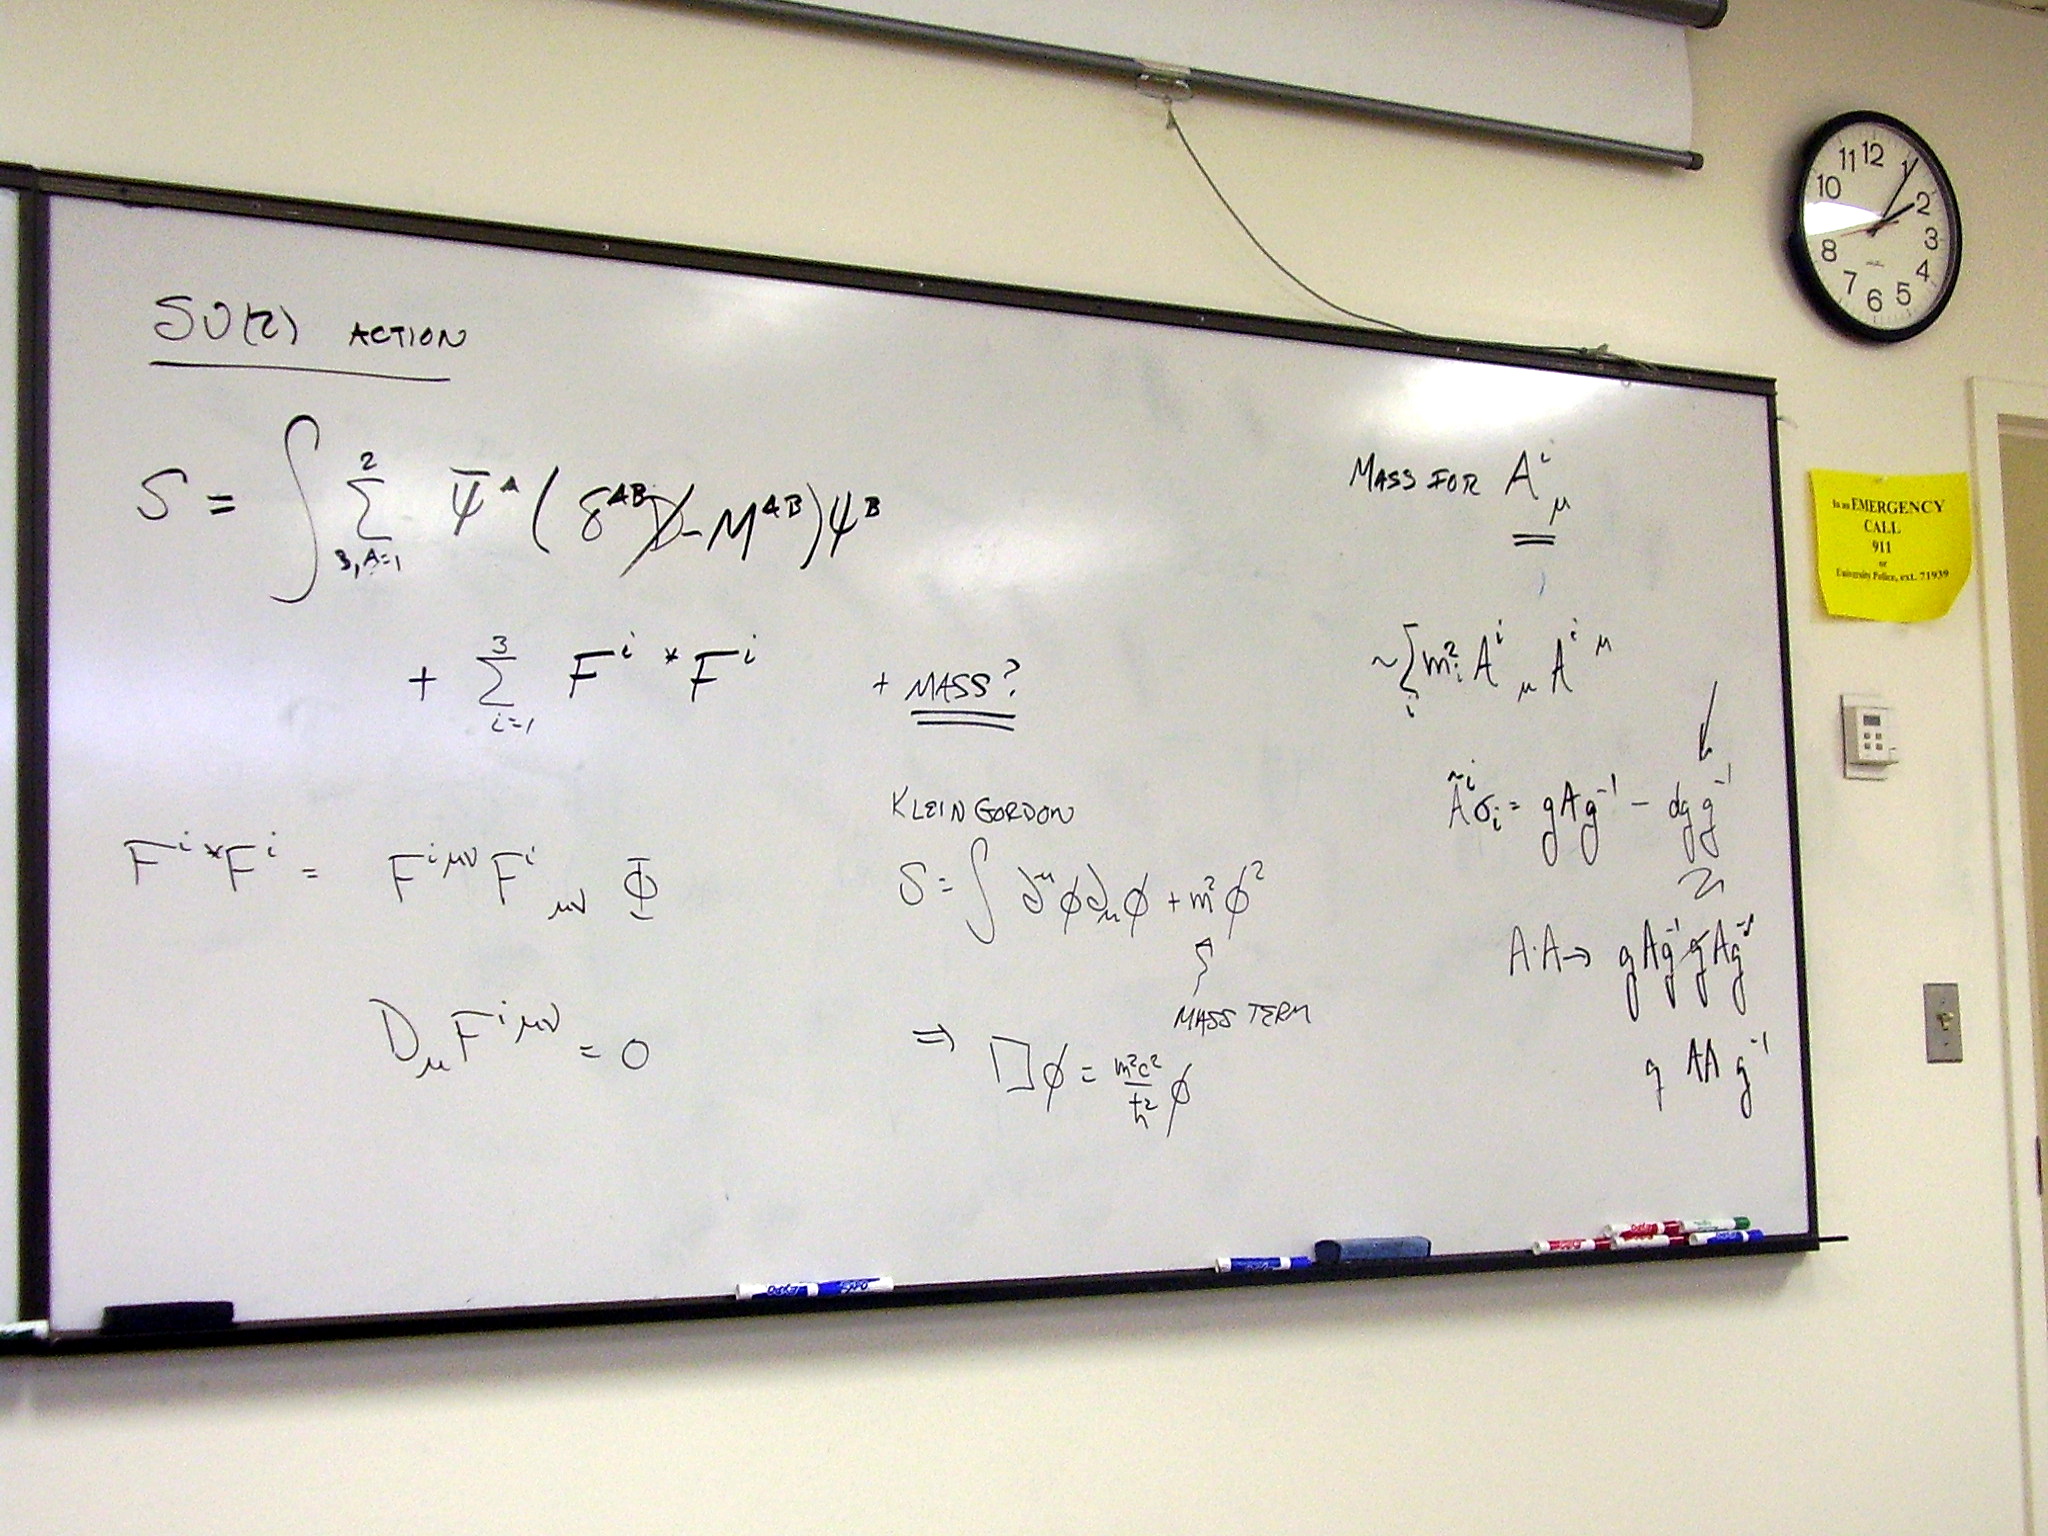 SU(2) ACTION
S = ∫ Σ^2_{B,A=1} ψ̄^A ( δ^{AB} D̸ - M^{AB} ) ψ^B
+ Σ^3_{i=1} F^i * F^i + MASS?
F^i * F^i = F^{iμν} F^i_{μν} Φ
D_μ F^{iμν} = 0
KLEIN GORDON
S = ∫ ∂^μ φ ∂_μ φ + m^2 φ^2
MASS TERM
⇒ □φ = m^2c^2/ħ^2 φ
MASS FOR A^i_μ
~ Σ_i m_i^2 A^i_μ A^{i μ}
Ã^i σ_i = g A g^{-1} - dg g^{-1}
A·A → g A g^{-1} g A g^{-1}
g AA g^{-1}
11 12 1
10 2
3
8 4
7 6 5
In an EMERGENCY
CALL
911
or
University Police, ext. 71939
EXPO
EXPO